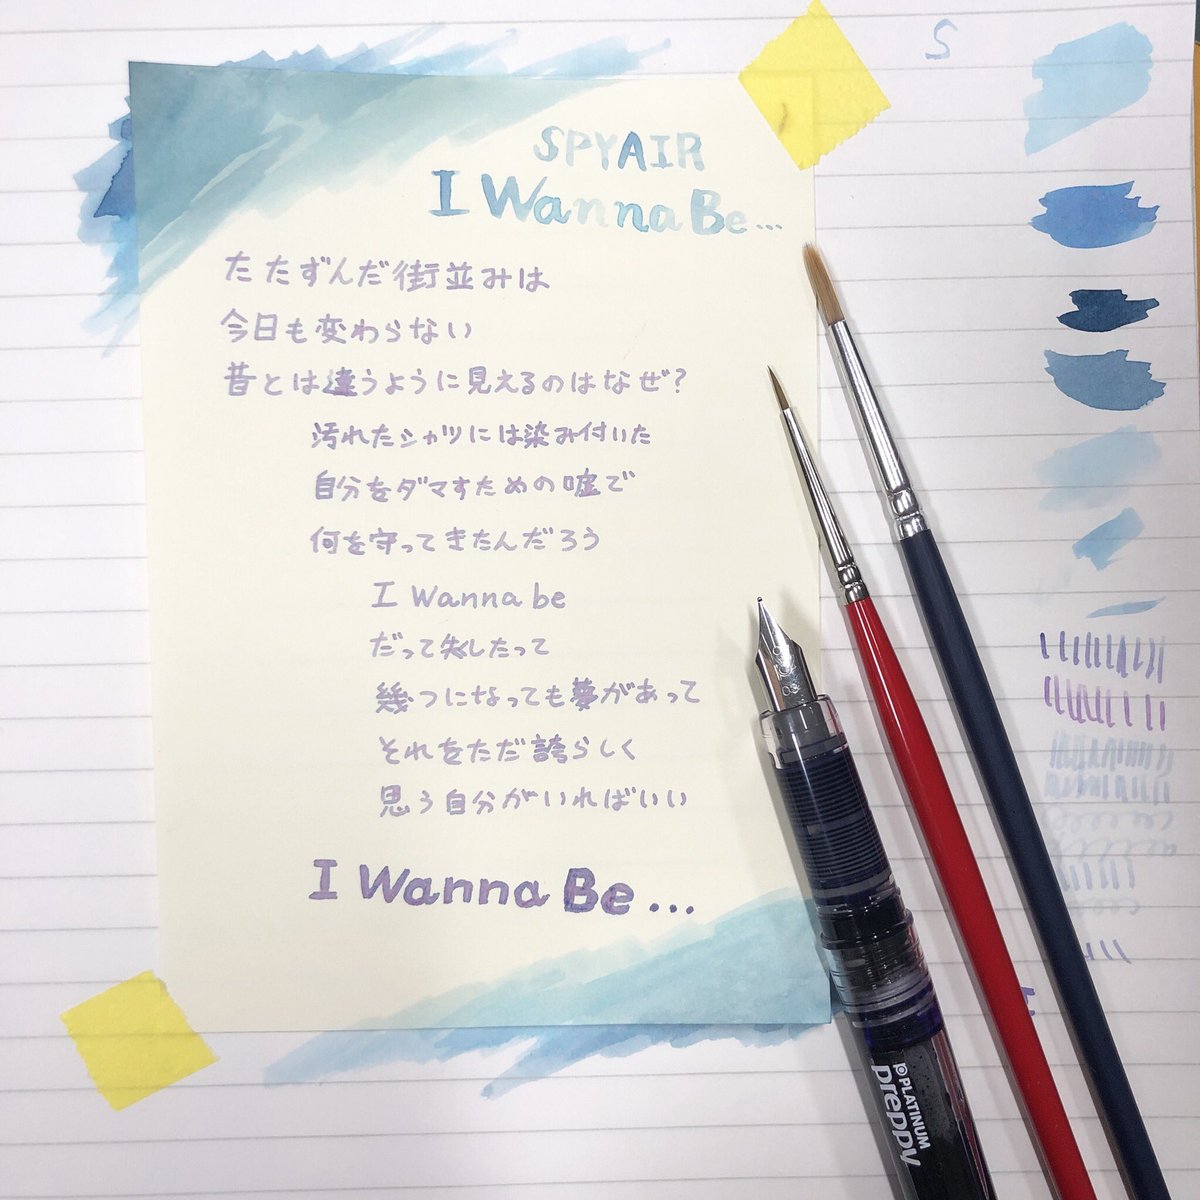 SPYAIR
I Wanna Be...
たたずんだ街並みは
今日も変わらない
昔とは違うように見えるのはなぜ?
汚れたシャツには染み付いた
自分をダマすための嘘で
何を守ってきたんだろう
I Wanna be
だって失したって
幾つになっても夢があって
それをただ誇らしく
思う自分がいればいい
I Wanna Be...
PLATINUM
preppy
03